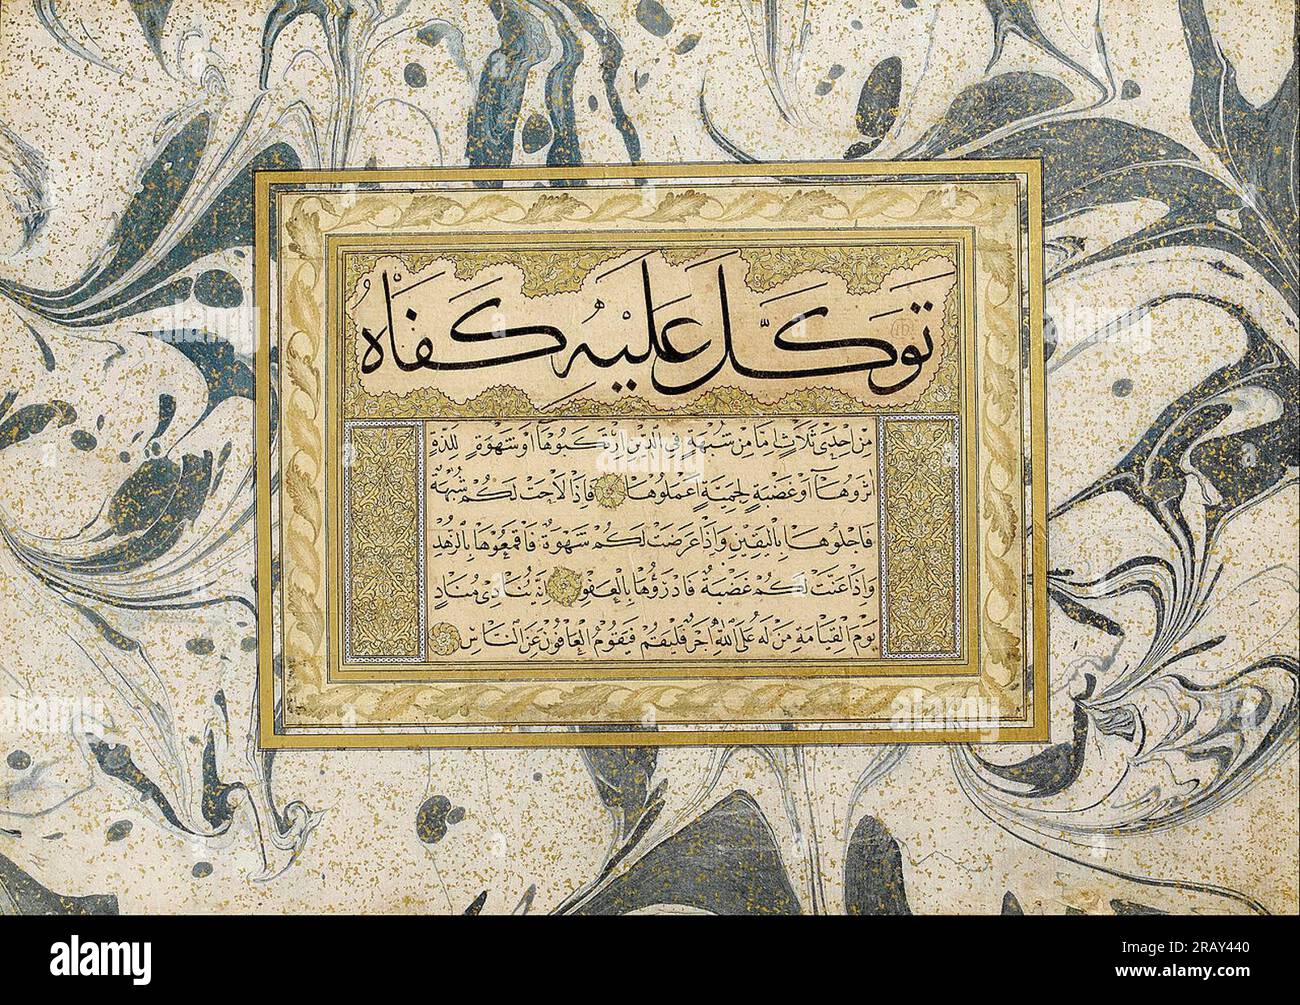 توكل عليه كفاه
من احدى ثلاث اما من شبهة في الدين ارتكبوها او شهوة للذة
اثروها او غضبة لحمية اعملوها فاذا لاحت لكم شبهة
فاجلوها باليقين واذا عرضت لكم شهوة فاقمعوها بالزهد
واذا عنت لكم غضبة فادرؤها بالعفو انه ينادى مناد
يوم القيامة من له على الله اجر فليقم فيقوم العافون عن الناس
alamy
alamy
alamy
alamy
alamy
Image ID: 2RAY440
www.alamy.com